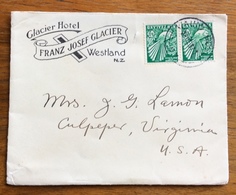 Glacier Hotel
FRANZ JOSEF GLACIER
Westland
N.Z.
Mrs. J. G. Lamon
Culpeper, Virginia
U.S.A.